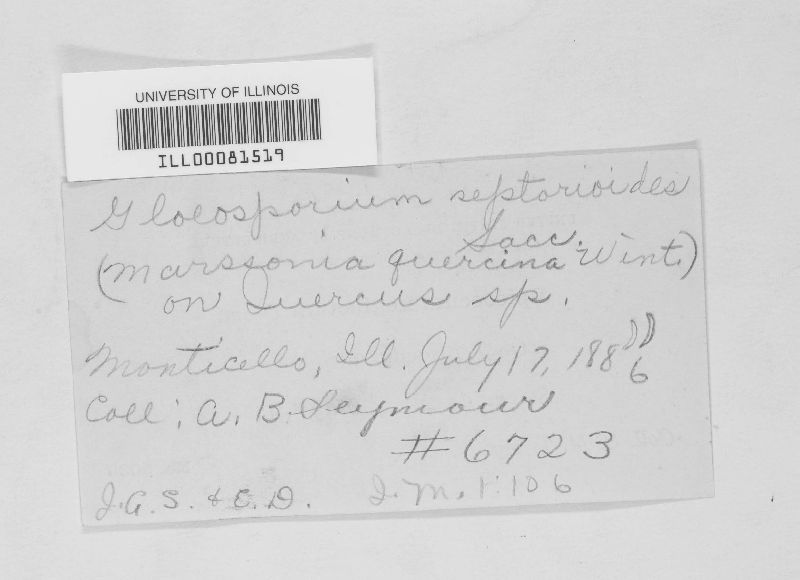 UNIVERSITY OF ILLINOIS
ILL00081519
Gloeosporium septorioides
Sacc.
(Marssonia quercina Wint.)
on Quercus sp.
Monticello, Ill. July 17, 188
6
Coll; A. B. Seymour
#6723
J.G.S. & E.D. I.M.V. 106